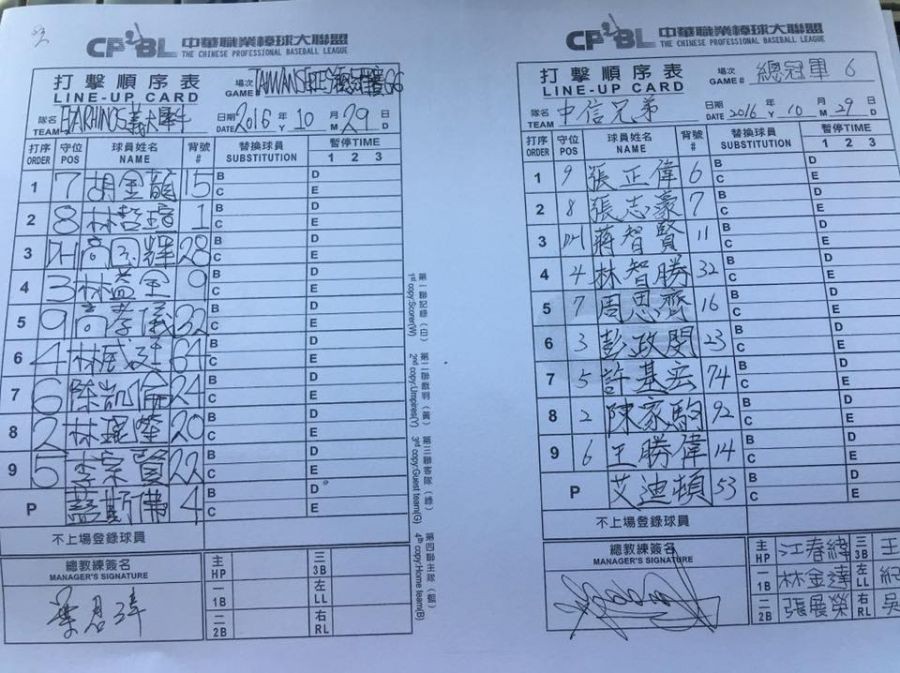 CPBL 中華職業棒球大聯盟
THE CHINESE PROFESSIONAL BASEBALL LEAGUE
打擊順序表
LINE-UP CARD
場次
GAME# TAIWAN SERIES總冠軍G6
隊名
TEAM EDARHINOS義大犀牛
日期
DATE 2016 年Y 10 月M 29 日D
打序 守位 球員姓名 背號 替換球員 暫停TIME
ORDER POS NAME # SUBSTITUTION 1 2 3
1 7 胡金龍 15 B C D E
2 8 林哲瑄 1 B C D E
3 DH 高國輝 28 B C D E
4 3 林益全 9 B C D E
5 9 高孝儀 32 B C D E
6 4 林威廷 B C D E
7 6 陳凱倫 24 B C D E
8 2 林琨笙 20 B C D E
9 5 李宗賢 22 B C D E
P 藍斯佛 4 B C D E
不上場登錄球員
總教練簽名
MANAGER'S SIGNATURE
葉君璋
主HP 三3B
一1B 左LL
二2B 右RL
第一聯記錄(白) 第二聯裁判(黃) 第三聯客隊(綠) 第四聯主隊(藍)
1st copy:Scorer(W) 2nd copy:Umpires(Y) 3rd copy:Guest team(G) 4th copy:Home team(B)
CPBL 中華職業棒球大聯盟
THE CHINESE PROFESSIONAL BASEBALL LEAGUE
打擊順序表
LINE-UP CARD
場次
GAME# 總冠軍 6
隊名
TEAM 中信兄弟
日期
DATE 2016 年Y 10 月M 29 日D
打序 守位 球員姓名 背號 替換球員 暫停TIME
ORDER POS NAME # SUBSTITUTION 1 2 3
1 9 張正偉 6 B C D E
2 8 張志豪 7 B C D E
3 DH 蔣智賢 11 B C D E
4 4 林智勝 32 B C D E
5 7 周思齊 16 B C D E
6 3 彭政閔 23 B C D E
7 5 許基宏 74 B C D E
8 2 陳家駒 92 B C D E
9 6 王勝偉 14 B C D E
P 艾迪頓 53 B C D E
不上場登錄球員
總教練簽名
MANAGER'S SIGNATURE
主HP 江春緯 三3B 王
一1B 林金達 左LL 紀
二2B 張展榮 右RL 吳